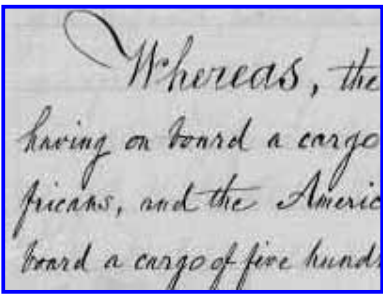 Whereas, the
having on board a cargo
fricans, and the Americ
board a cargo of five hund